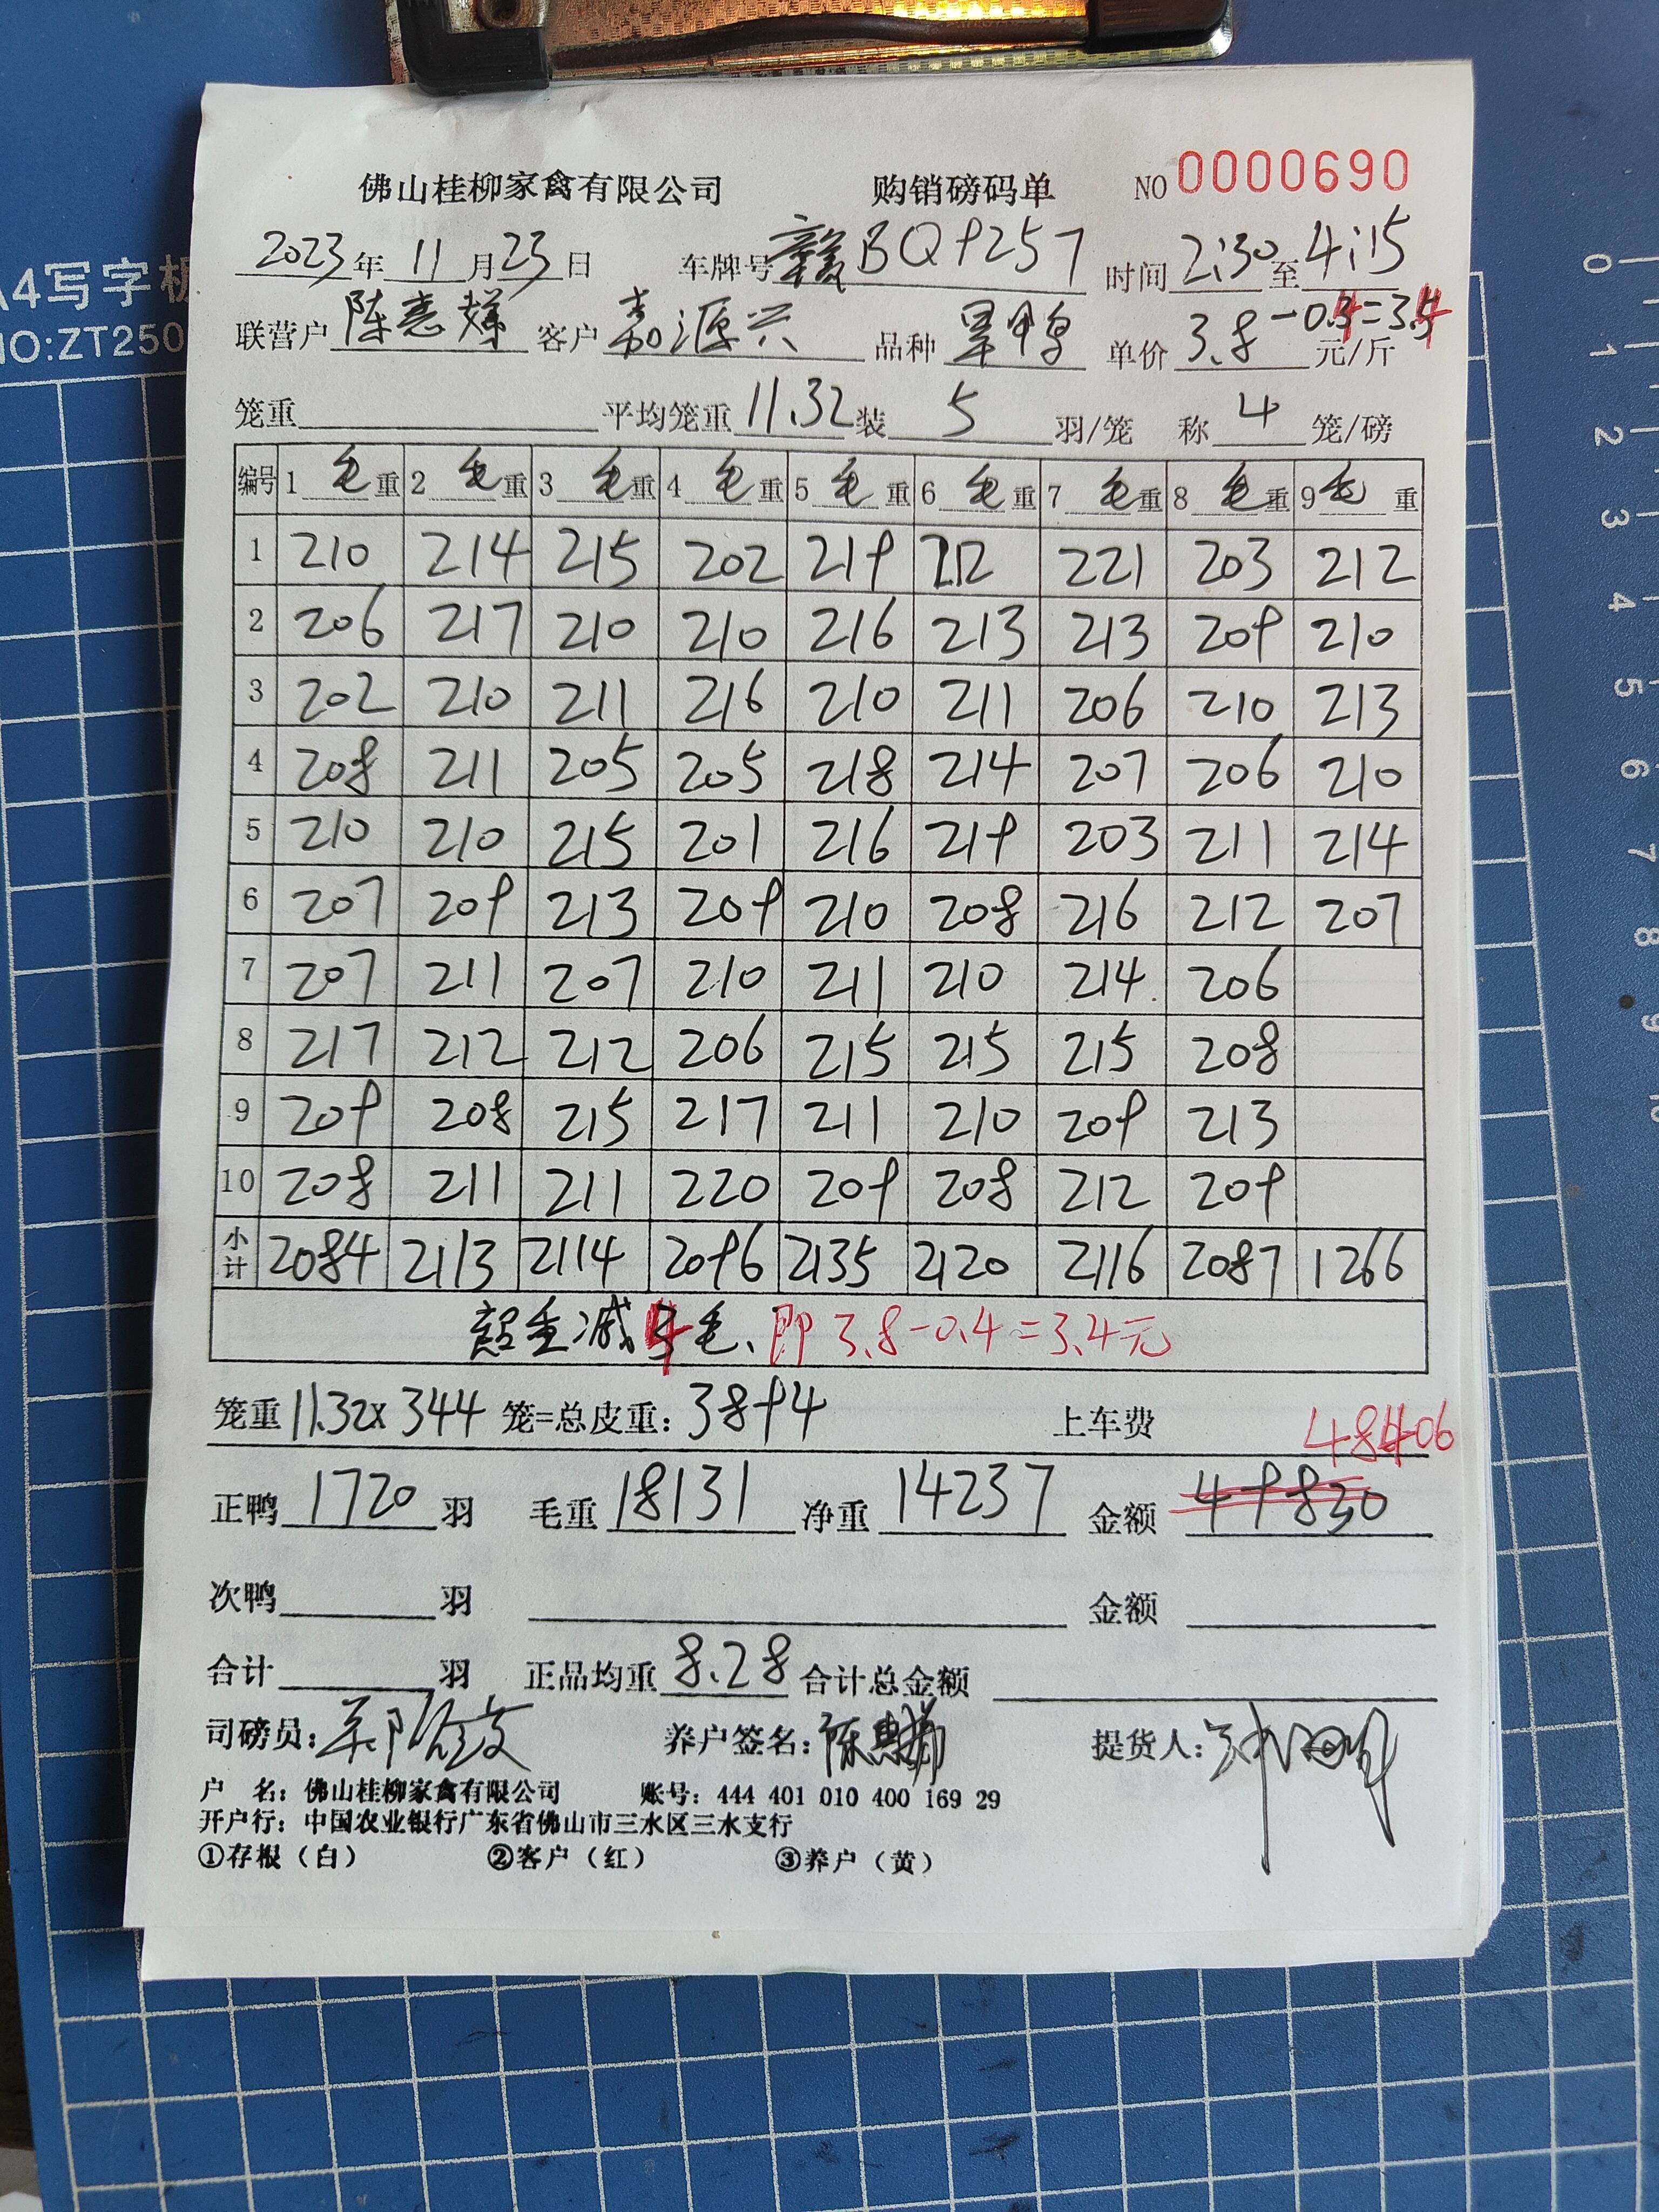 A4写字板
NO:ZT250
佛山桂柳家禽有限公司 购销磅码单 NO 0000690
2023年 11月23日 车牌号 赣BQ9257 时间 2:30 至 4:15
联营户 陈惠嫦 客户 嘉源兴 品种 单价 3.8-0.4=3.4 元/斤
笼重 平均笼重 11.32 装 5 羽/笼 称 4 笼/磅
编号 1 毛重 2 毛重 3 毛重 4 毛重 5 毛重 6 毛重 7 毛重 8 毛重 9 毛重
1 210 214 215 202 219 212 221 203 212
2 206 217 210 210 216 213 213 209 210
3 202 210 211 216 210 211 206 210 213
4 208 211 205 205 218 214 207 206 210
5 210 210 215 201 216 219 203 211 214
6 207 209 213 209 210 208 216 212 207
7 207 211 207 210 211 210 214 206
8 217 212 212 206 215 215 215 208
9 209 208 215 217 211 210 209 213
10 208 211 211 220 209 208 212 209
小计 2084 2113 2114 2096 2135 2120 2116 2087 1266
超重减4毛、即3.8-0.4=3.4元
笼重 11.32x 344 笼=总皮重: 3894 上车费
48406
正鸭 1720 羽 毛重 18131 净重 14237 金额 49830
次鸭 羽 金额
合计 羽 正品均重 8.28 合计总金额
司磅员: 养户签名: 提货人:
户 名: 佛山桂柳家禽有限公司 账号: 444 401 010 400 169 29
开户行: 中国农业银行广东省佛山市三水区三水支行
①存根（白） ②客户（红） ③养户（黄）
0
1
2
3
4
5
6
7
8
9
10